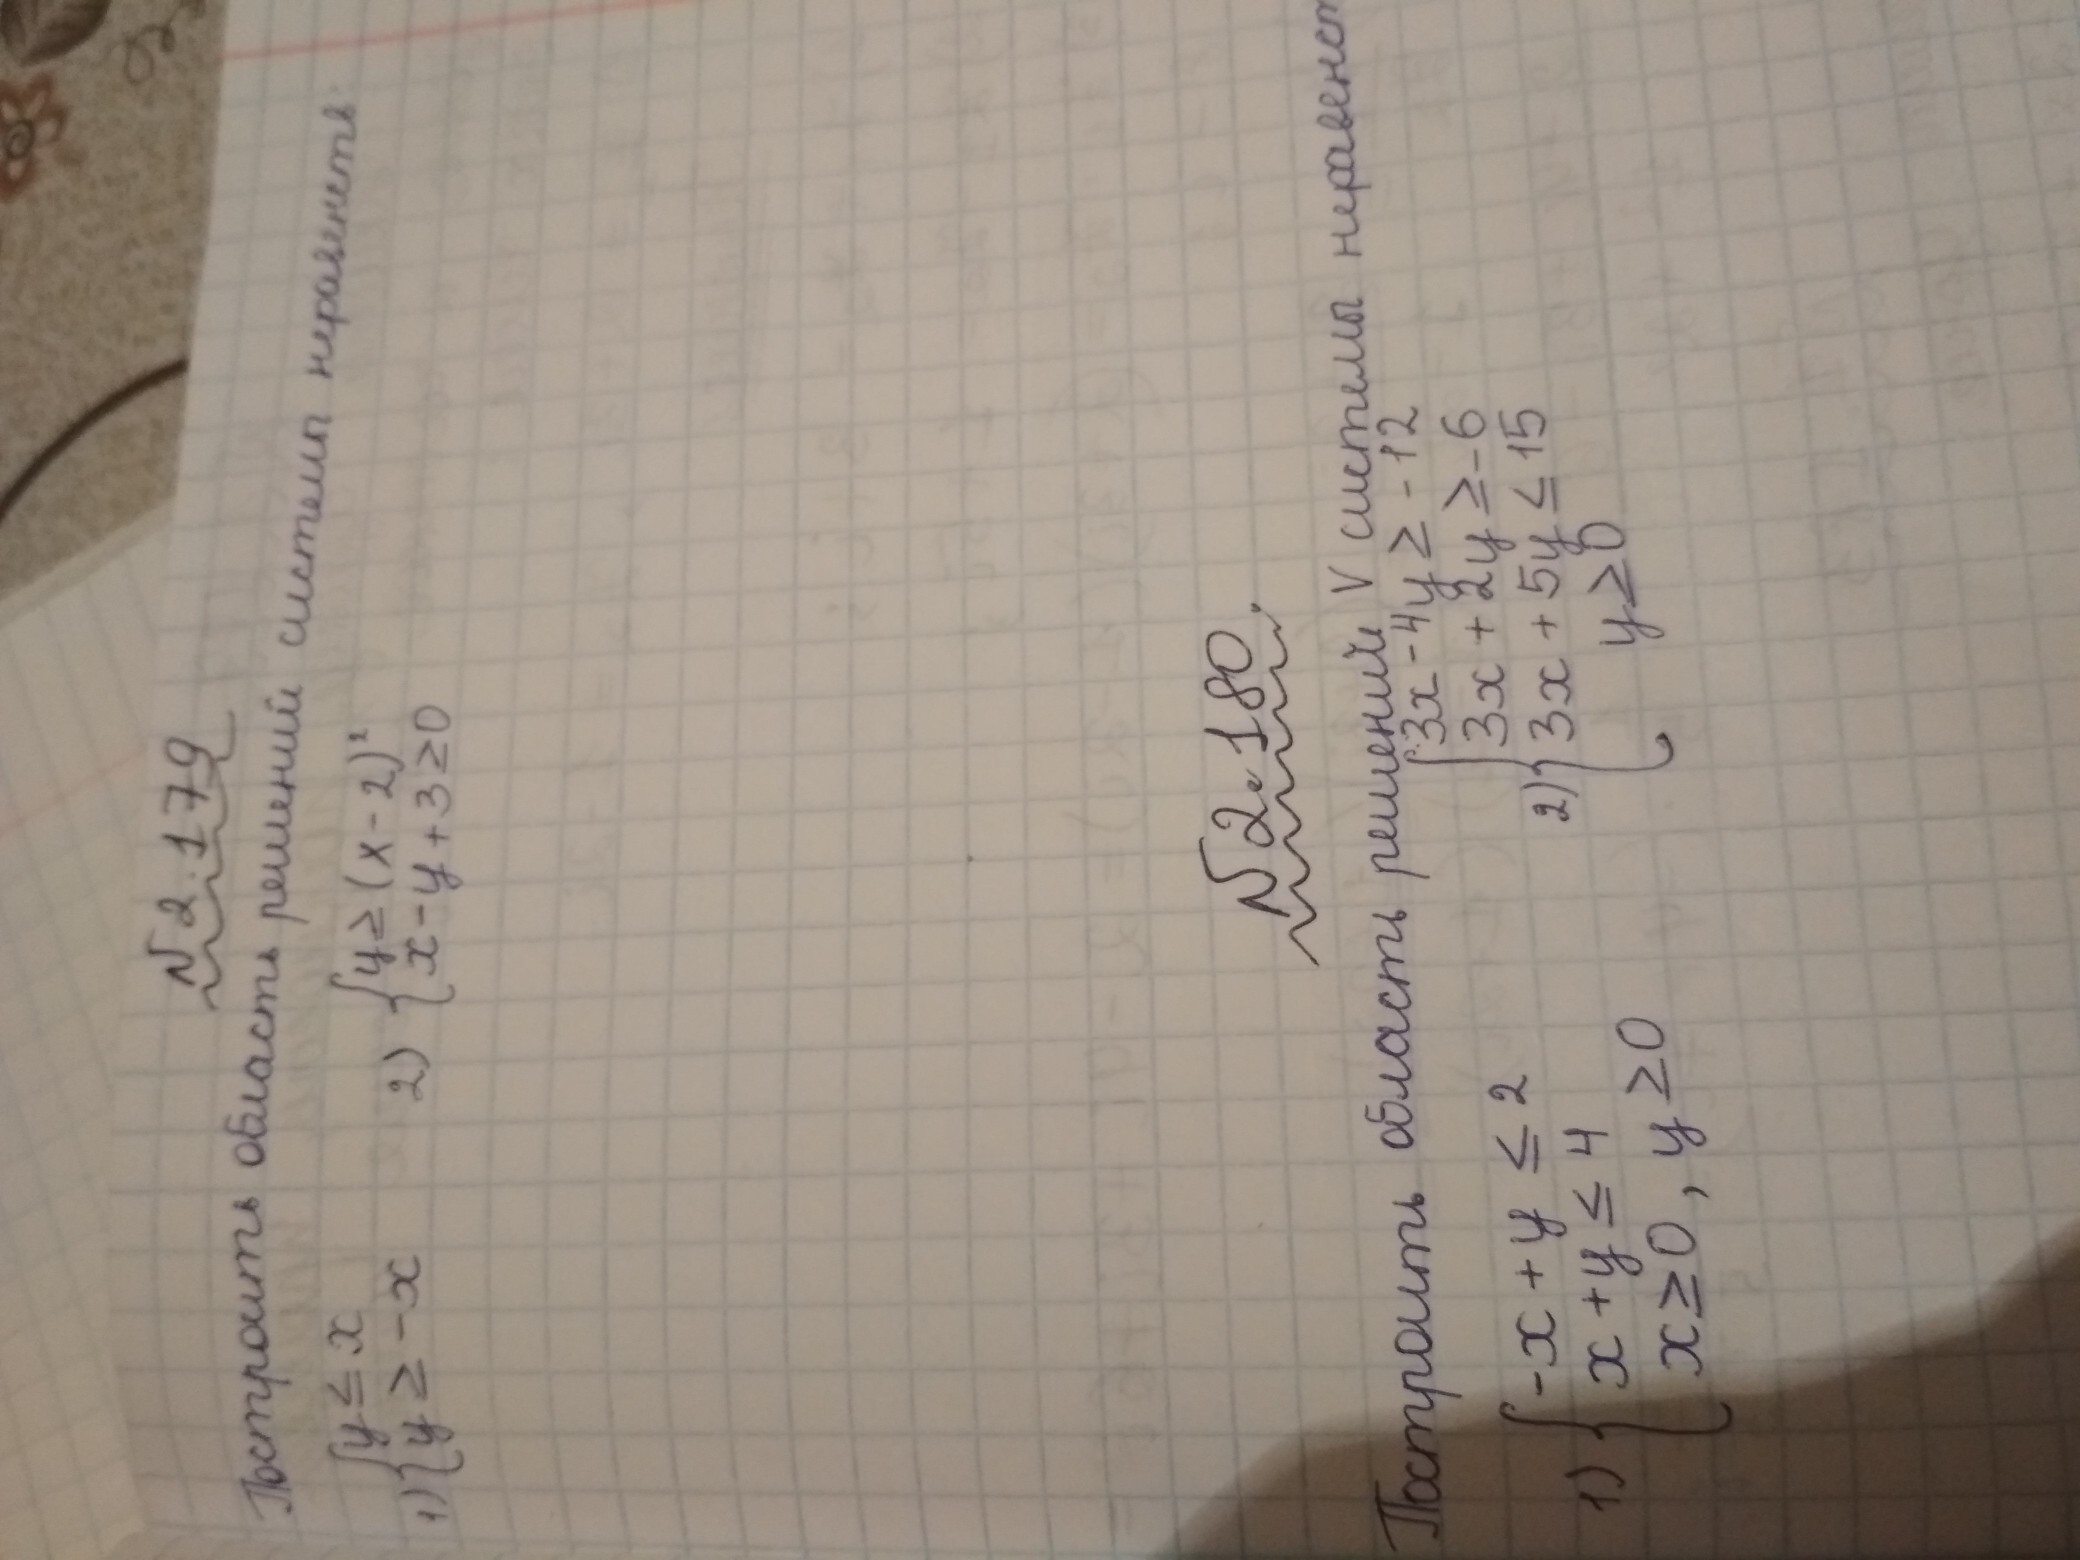 № 2.179
Построить область решений системы неравенств:
1) { y ≤ x
y ≥ -x
2) { y ≥ (x - 2)²
x - y + 3 ≥ 0
№ 2.180.
Построить область решений V системы неравенст
1) { -x + y ≤ 2
x + y ≤ 4
x ≥ 0, y ≥ 0
2) { 3x - 4y ≥ -12
3x + 2y ≥ -6
3x + 5y ≤ 15
y ≥ 0